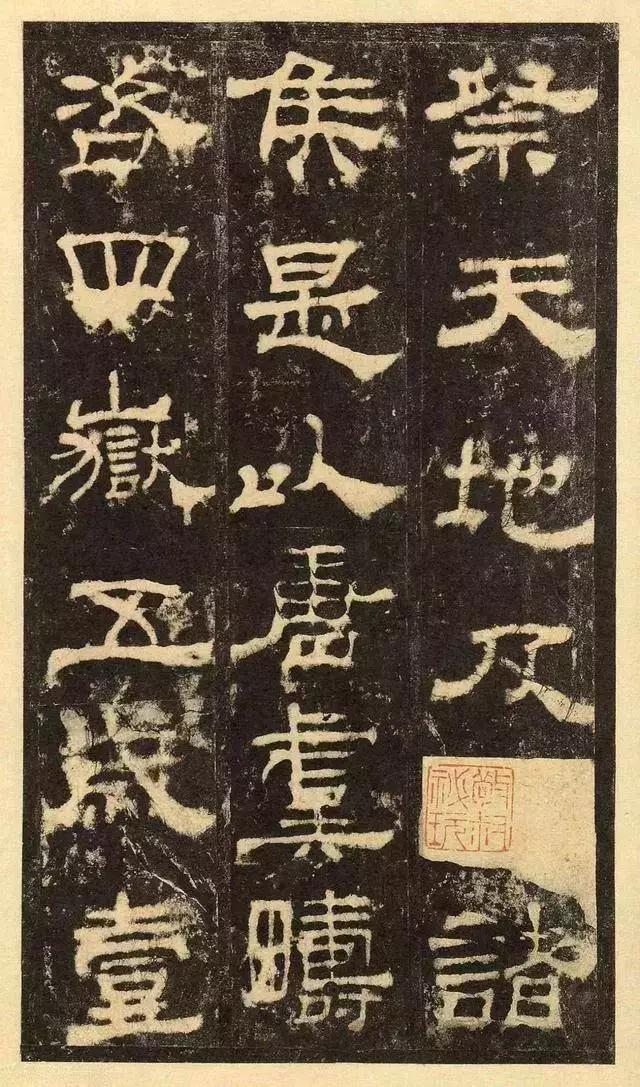 祭天地及諸
侯是以唐虞疇
咨四嶽五歲壹